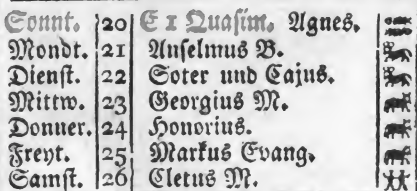 Sonnt. 20 E 1 Quasim. Agnes.
Mondt. 21 Anselmus B.
Dienst. 22 Soter und Cajus.
Mittw. 23 Georgius M.
Donner. 24 Honorius.
Freyt. 25 Markus Evang.
Samst. 26 Cletus M.